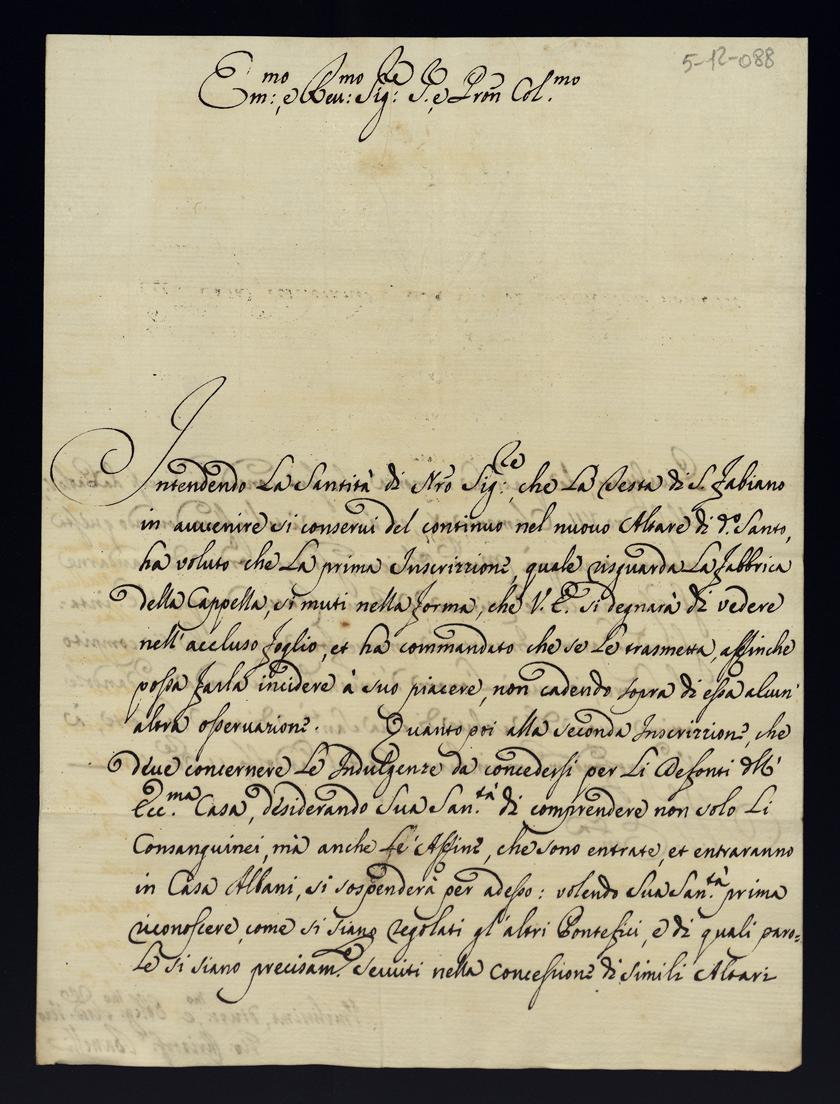 5-12-088
Em:mo, e Reu:mo Sig:re S.e, e Pron Col.mo
Intendendo La Santità di Nro Sig:re, che La Testa di S. Fabiano
in auuenire si conserui del continuo nel nuouo Altare di d.o Santo,
ha voluto che La prima Inscrizzione, quale risguarda La Fabbrica
della Cappella, si muti nella forma, che V. E.a si degnarà di vedere
nell'accluso foglio, et ha commandato che se Le trasmetta, affinche
possa farla incidere à suo piacere, non cadendo sopra di essa alcun'
altra osseruazione. Quanto poi alla seconda Inscrizzione, che
deue concernere Le Indulgenze da concedersi per Li Defonti dell'
Ecc.ma Casa, desiderando Sua San.tà di comprendere non solo Li
Consanguinei, mà anche Le Affine, che sono entrate, et entraranno
in Casa Albani, si sospenderà per adesso: volendo Sua San.tà prima
riconoscere, come si siano regolati gl'altri Pontefici, e di quali paro=
Le si siano precisam.te seruiti nella concessione di simili Altari